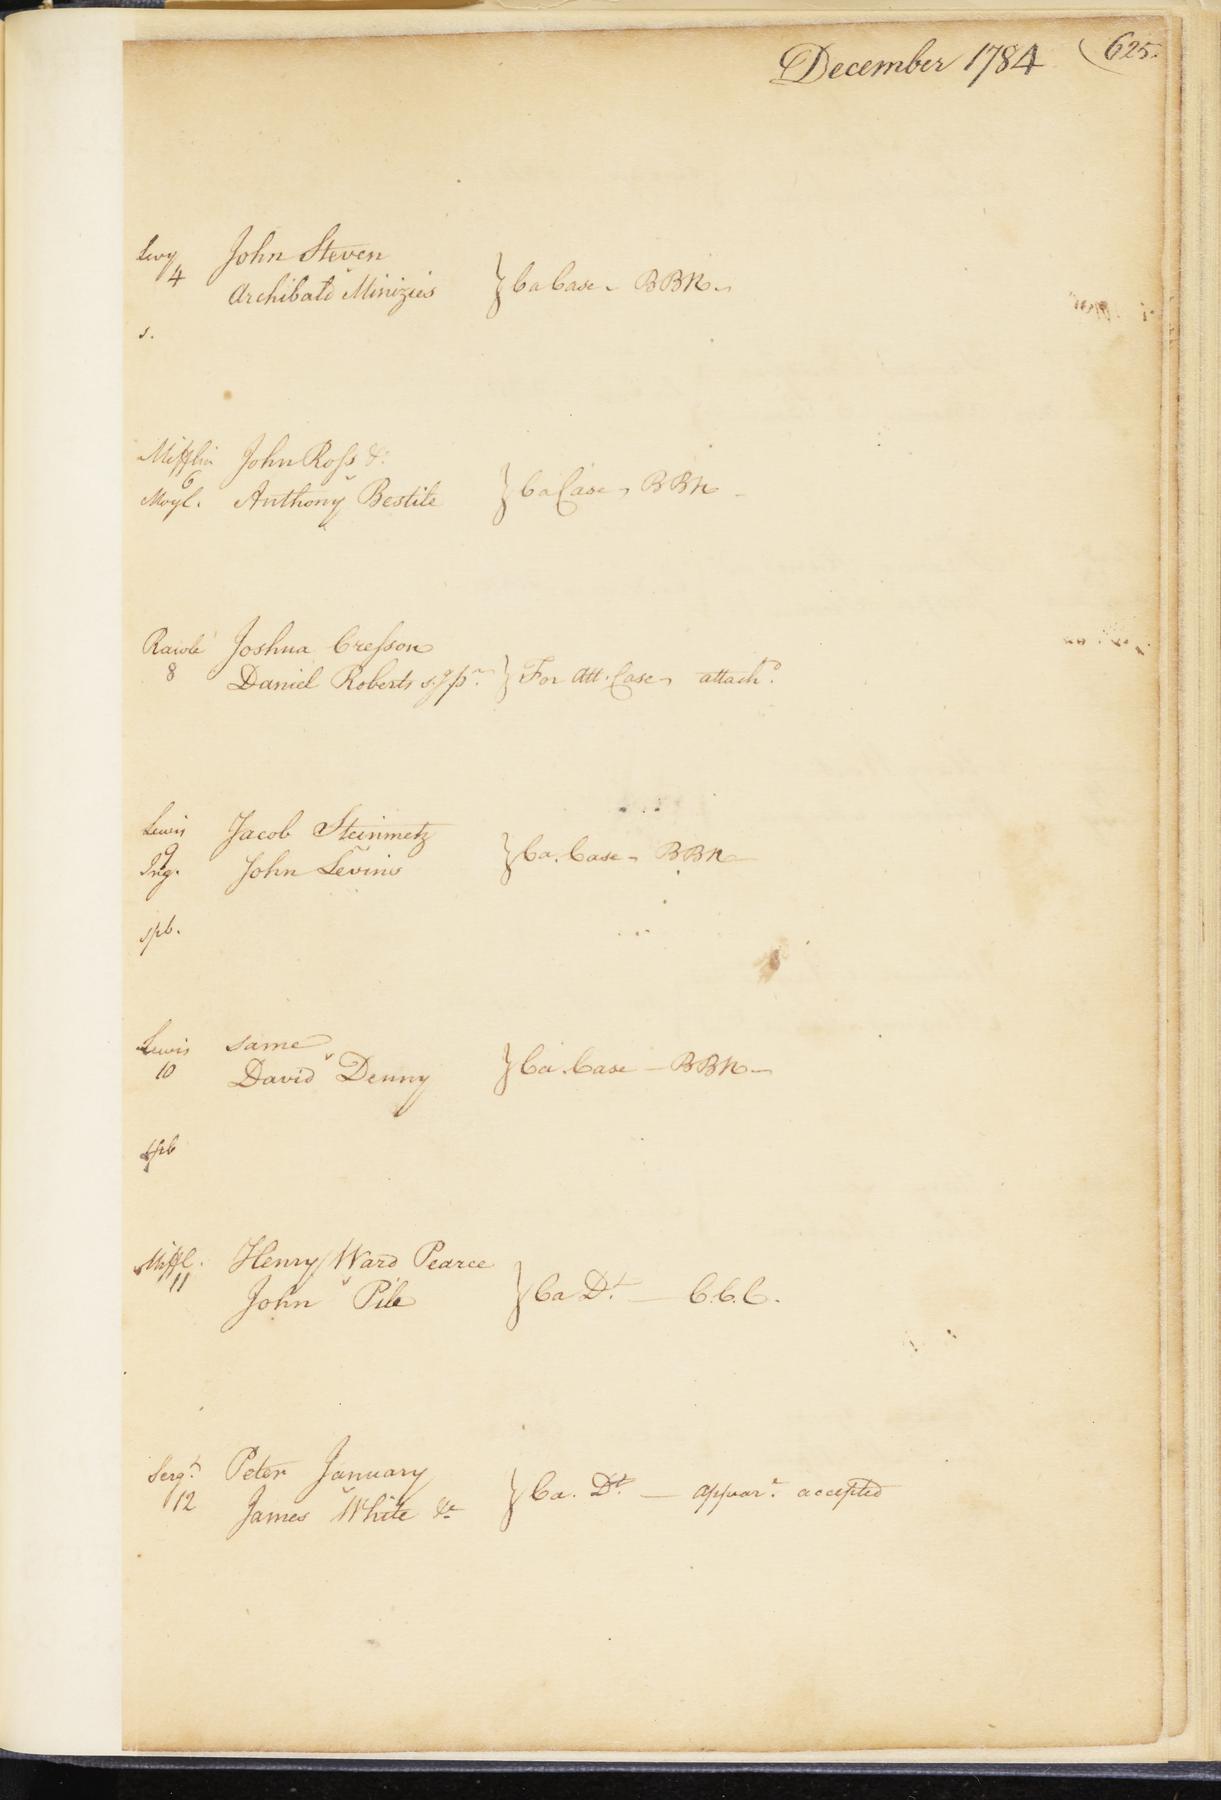 December 1784 (625.
Levy John Steven
4 v } Ca Case - BBR -
Archibald Minizies
s.
Mifflin John Ross &c
6 v } Ca Case - BBR -
Moyl. Anthony Bestile
Rawle Joshua Cresson
8 Daniel Roberts } For Att. Case - attachd.
Lewis Jacob Steinmetz
9 v } Ca. Case - BBR -
Ing. John Levins
spb.
Lewis same
10 v } Ca. Case - BBR -
David Denny
spb
Miffl. Henry Ward Pearce
11 v } Ca Dt. — C.C.C.
John Pile
Sergt. Peter January
12 v } Ca. Dt. — appear. accepted
James White &c